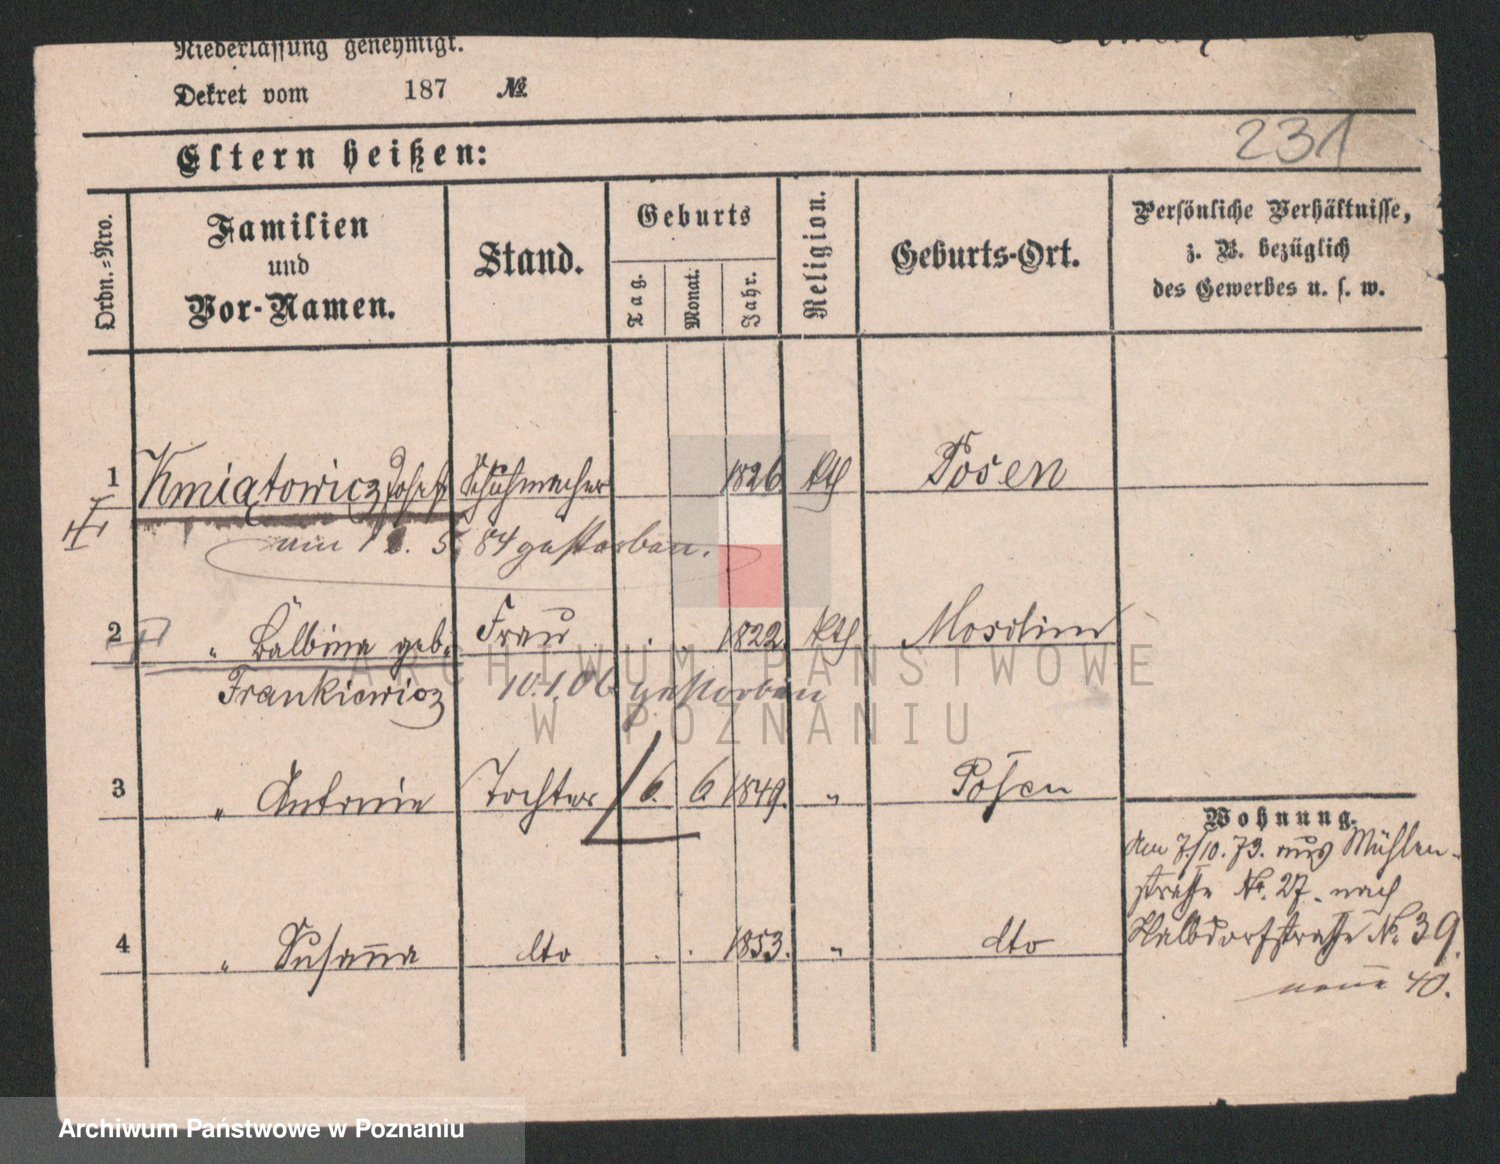 Niederlassung genehmigt.
Dekret vom 187 №
231
Eltern heißen:
Ordn.-Nro.
Familien
und
Vor-Namen.
Stand.
Geburts
Tag.
Monat.
Jahr.
Religion.
Geburts-Ort.
Persönliche Verhältnisse,
z. B. bezüglich
des Gewerbes u. s. w.
1 Kmiątowicz Josef Schuhmacher 1826 kth Posen
am 5. 84 gestorben.
2 " Balbina geb. Frau . . 1822. kth
Frankiewicz 10.1.06 gestorben
3 " Antonie Tochter 6. 6 1849. " Posen
Wohnung.
Am 7./10. 73. aus Mühlen-
straße №. 27. nach
Halbdorfstraße №. 39.
neue 40.
4 " Susanna dto . . 1853. " dto
ARCHIWUM PAŃSTWOWE
W POZNANIU
Archiwum Państwowe w Poznaniu